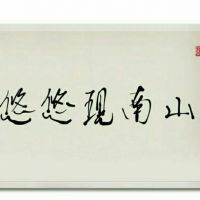 悠悠现南山